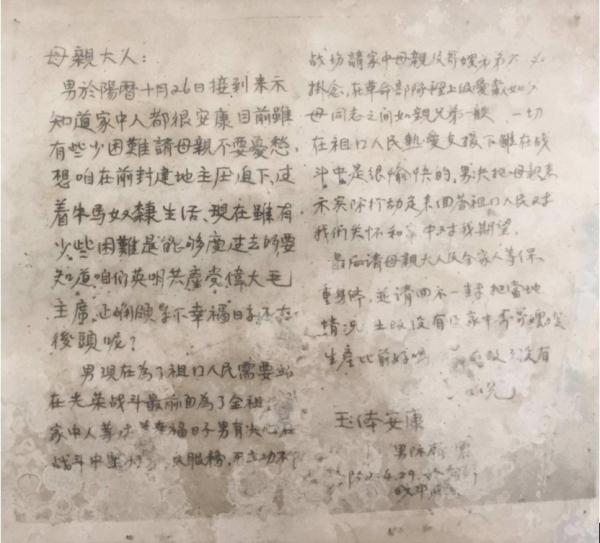 母親大人：
男於陽曆十月26日接到来示
知道家中人都很安康目前雖
有些少困難請母親不要憂愁，
想咱在前封建地主压迫下，过
着牛馬奴隸生活、現在雖有
少些困難是能够度过去的要
知道咱们英明共產党偉大毛
主席、正确領导下幸福日子不在
後頭呢？
男現在為了祖囗人民需要站
在光荣战斗最前面為了全祖
家中人等过幸福日子男有决心在
战斗中坚 服務，不立功不
战场請家中母親及哥嫂
掛念，在革命部隊裡上级愛戴如
母同志之间如親兄弟一般 一切
在祖囗人民熱愛支援下雖在战
斗中是很愉快的，男决把母親来
示实际行动来回答祖囗人民对
我们关怀和家中对我期望。
最后请母親大人及全家人等保
重身体，並请回示一封把當地
情况 土改没有 家中哥哥嫂嫂
生產比前好嗎 没有
玉体安康
男
1952.4.29.